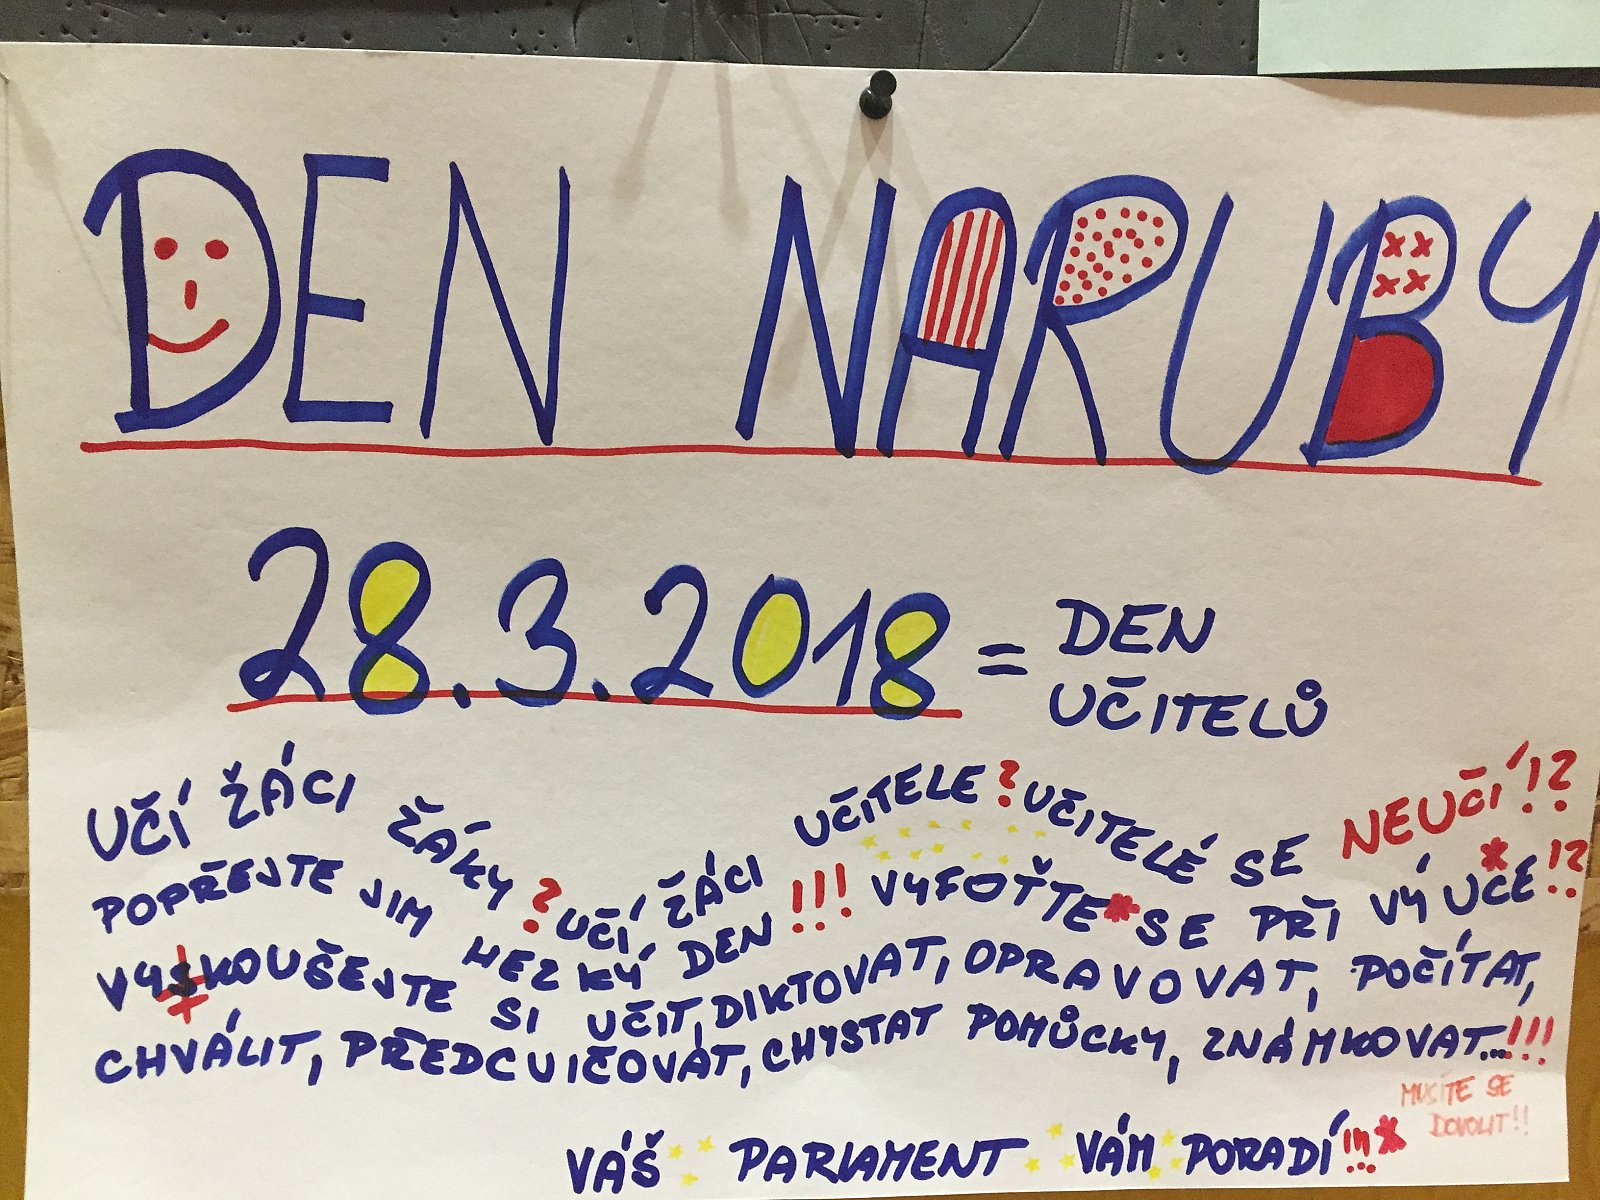 DEN NARUBY
28.3.2018 = DEN UČITELŮ
UČÍ ŽÁCI ŽÁKY? UČÍ ŽÁCI UČITELE? UČITELÉ SE NEUČÍ!?
POPŘEJTE JIM HEZKÝ DEN!!! VYFOŤTE* SE PŘI VÝUCE*!?
VYSKOUŠEJTE SI UČIT, DIKTOVAT, OPRAVOVAT, POČÍTAT,
CHVÁLIT, PŘEDCVIČOVAT, CHYSTAT POMŮCKY, ZNÁMKOVAT...!!!
VÁŠ PARLAMENT VÁM PORADÍ!!!* MUSÍTE SE
DOVOLIT!!